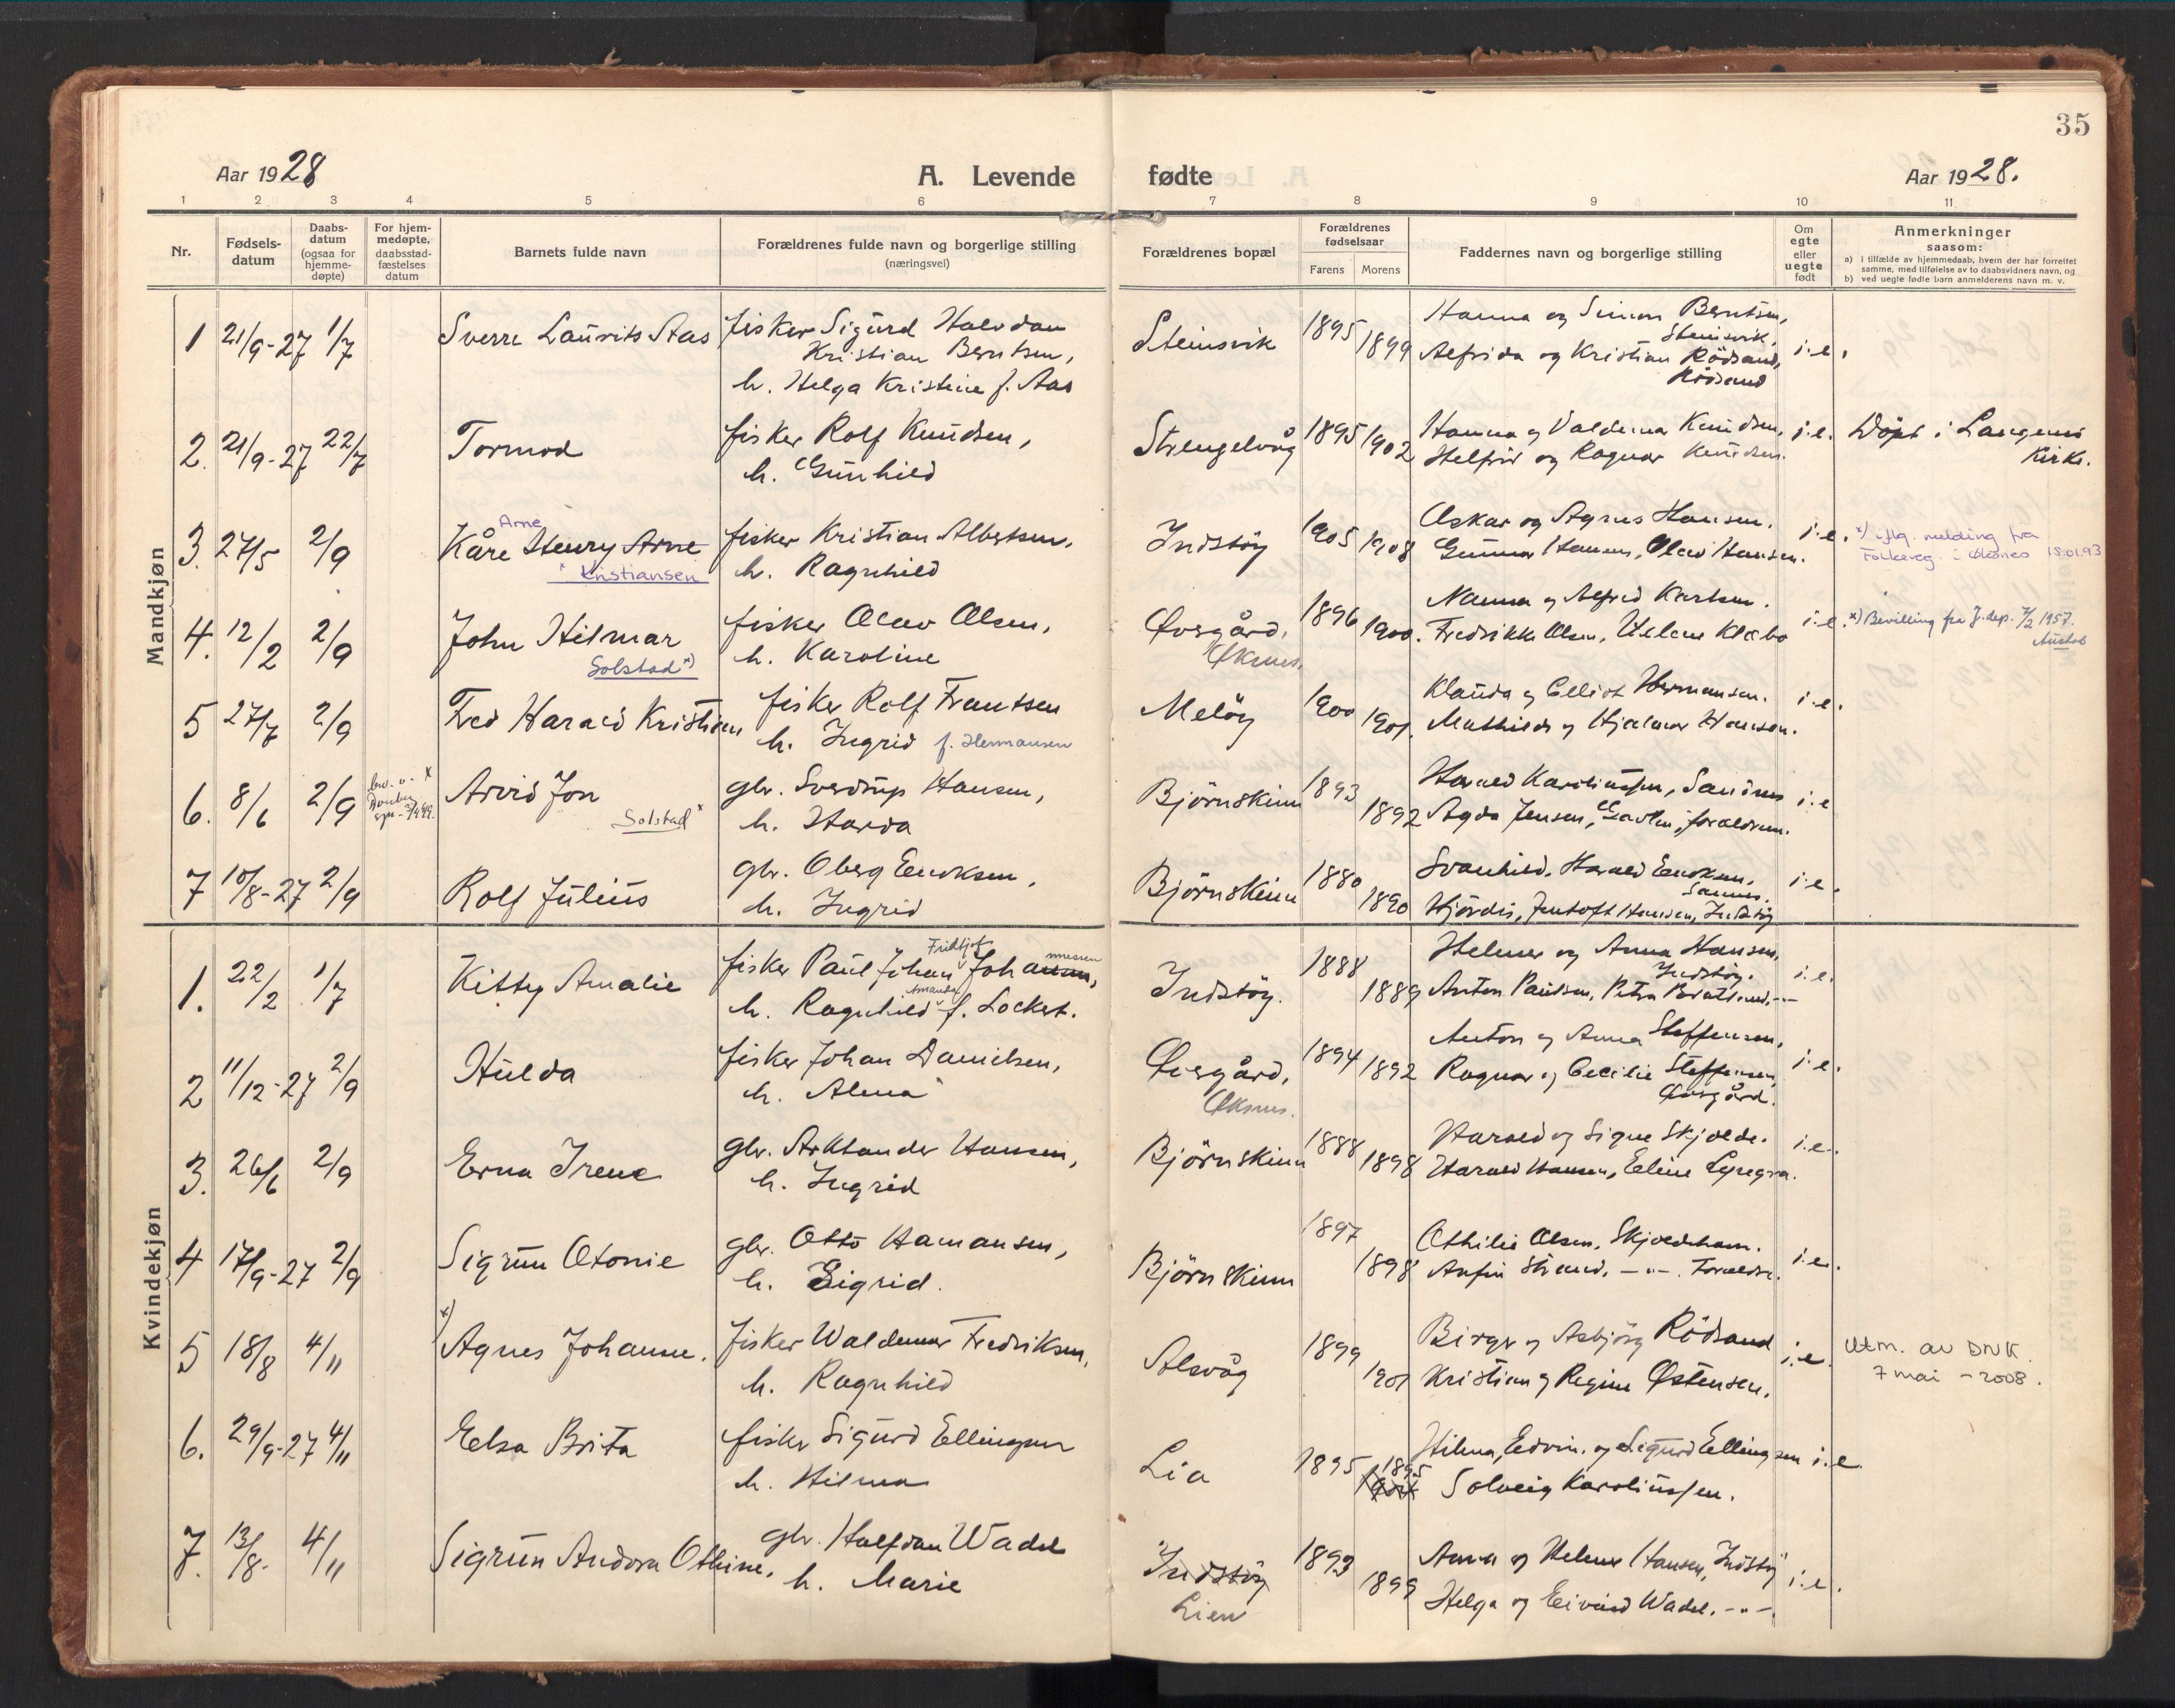 35
Aar 1928
A. Levende
fødte
Aar 1928.
1 2 3 4 5 6 7 8 9 10 11
Nr.
Fødsels-
datum
Daabs-
datum
(ogsaa for
hjemme-
døpte)
For hjem-
medøpte,
daabsstad-
fæstelses
datum
Barnets fulde navn
Forældrenes fulde navn og borgerlige stilling
(næringsvei)
Forældrenes bopæl
Forældrenes
fødselsaar
Farens Morens
Faddernes navn og borgerlige stilling
Om
egte
eller
uegte
født
Anmerkninger
saasom:
a) i tilfælde av hjemmedaab, hvem der har forrettet
samme, med tilføielse av to daabsvidners navn, og
b) ved uegte fødte barn anmelderens navn m. v.
Mandkjøn
1 21/9-27 1/7 Sverre Laurits Aas
fisker Sigurd Halvdan
Kristian Berntsen,
h. Helga Kristine f. Aas
Steinsvik 1895 1899
Hanna og Simon Berntsen,
Steinsvik.
Alfrida og Kristian Rödsand, i.e.
Rödsand
2. 21/9-27 22/7 Tormod
fisker Rolf Knudsen,
h. Gunhild
Strengelvåg 1895 1902
Hanna og Valdemar Knudsen. i.e.
Helfrid og Ragnar Knudsen.
Döpt i Langenes
Kirke.
3. 27/5 2/9 Kåre Henry Arne
Arne
* Kristiansen
fisker Kristian Albertsen,
h. Ragnhild
Indstöy 1905 1908
Oskar og Agnes Hansen. i.e.
Gunnar Hansen, Olav Hansen.
*) iflg. melding fra
Folkereg. i Øksnes 15.01.93
4. 12/2 2/9 John Hilmar
Solstad *)
fisker Olav Olsen,
h. Karoline
Øvsgård,
Øksnes.
1896 1900.
Nanna og Alfred Karlsen.
Fredrikke Olsen, Helene Klæbo i.e.
*) Bevilling fra J.dep. 7/2 1957.
5 27/7 2/9 Fred Harald Kristian
fisker Rolf Frantsen
h. Ingrid f. Hermansen
Melöy 1900 1901.
Klauda og Elliot Hermansen. i.e.
Mathilde og Hjalmar Hansen.
6. 8/6 2/9 Arvid Jon
Solstad *
gbr. Sverdrup Hansen,
h. Harda
Björnskinn 1893 1892
Harald Karoliussen, i.e
Agda Jensen, forældrene.
7 10/8-27 2/9 Rolf Julius
gbr. Oberg Enoksen,
h. Ingrid
Björnskinn 1880 1890
Svanhild, Harald Enoksen, i.e.
Hjördis, Hansen, Indstöy
Kvindekjøn
1. 22/2 1/7 Kitty Amalie
Frithjof
fisker Paul Johan Johansen,
Amanda
h. Ragnhild f. Lockert.
Indstöy. 1888 1889
Helmer og Anna Hansen,
Indstöy. i.e.
Anton Paulsen, Petra
2 11/12-27 2/9 Hulda
fisker Johan Danielsen,
h. Alma
Øvsgård,
Øksnes.
1894 1892
Anton og Anna Steffensen, i.e.
Ragnar og Cecilie Steffensen,
Øvsgård.
3. 26/6 2/9 Erna Irene
gbr. Arktander Hansen,
h. Ingrid
Björnskinn 1888 1898
Harald og Signe Skjolde. i.e.
Harald Hansen, Eline
4 17/9-27 2/9 Sigrun Otonie
gbr. Otto Hamansen,
h. Sigrid.
Björnskinn 1897 1898
Othilie Olsen, Skjoldehavn. i.e.
Anfin Strand, -"-. Forældre.
5 18/8 4/11 *) Agnes Johanne.
fisker Waldemar Fredriksen,
h. Ragnhild
Alsvåg 1899 1901
Birger og Asbjörg Rödsand i.e.
Kristian og Regine Østensen.
Utm. av DNK.
7 mai - 2008.
6. 29/9-27 4/11 Elsa Brita
fisker Sigurd Ellingsen
h. Hilma
Lia 1895 1895
Hilma, Edvin, og Sigurd Ellingsen i.e
Solveig Karoliussen.
7. 13/8- 4/11 Sigrun Andora Othine.
gbr. Halfdan Wadel
h. Marie
Indstöy
Lien
1893 1899
Anna og Helmer Hansen, Indstöy i.e.
Helga og Eivind Wadel. -"-.